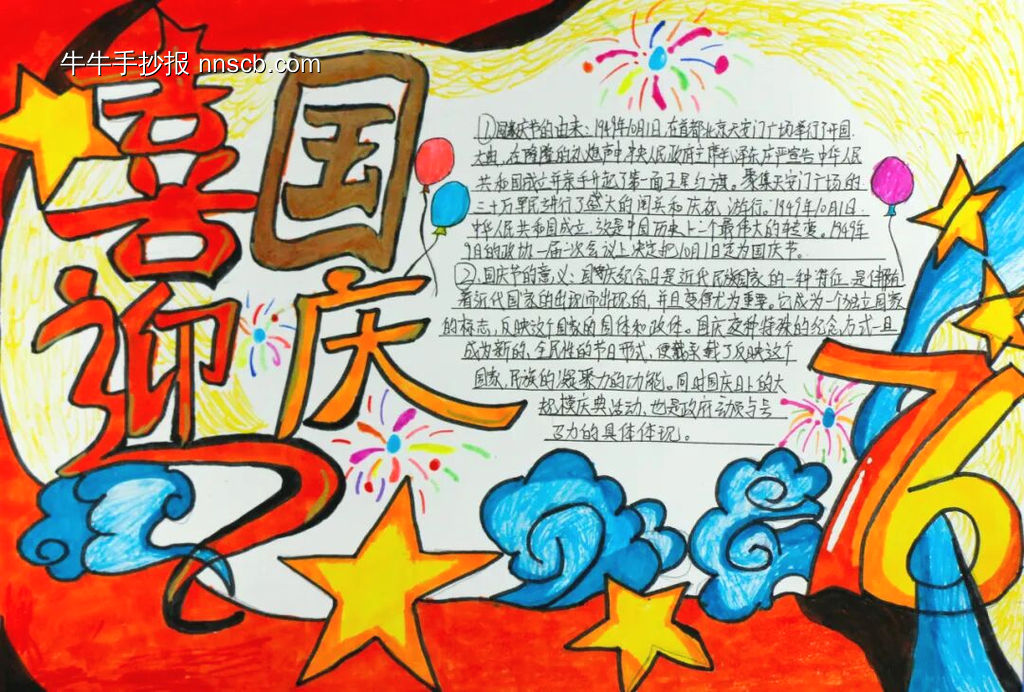 牛牛手抄报 nnscb.com
喜迎
国庆
76
①国庆节的由来:1949年10月1日,在首都北京天安门广场举行了开国
大典,在隆隆的礼炮声中,中央人民政府主席毛泽东庄严宣告中华人民
共和国成立并亲手升起了第一面五星红旗。聚集天安门广场的
三十万军民进行了盛大的阅兵和庆祝游行。1949年10月1日,
中华人民共和国成立,这是中国历史上一个最伟大的转变。1949年
9月的政协一届一次会议上决定把10月1日定为国庆节。
②国庆节的意义:国庆纪念日是近代民族国家的一种特征,是伴随
着近代国家的出现而出现的,并且变得尤为重要。它成为一个独立国家
的标志,反映这个国家的国体和政体。国庆这种特殊的纪念方式一旦
成为新的、全民性的节日形式,便载承载了反映这个
国家、民族的凝聚力的功能。同时国庆日上的大
规模庆典活动,也是政府动员与号
召力的具体体现。